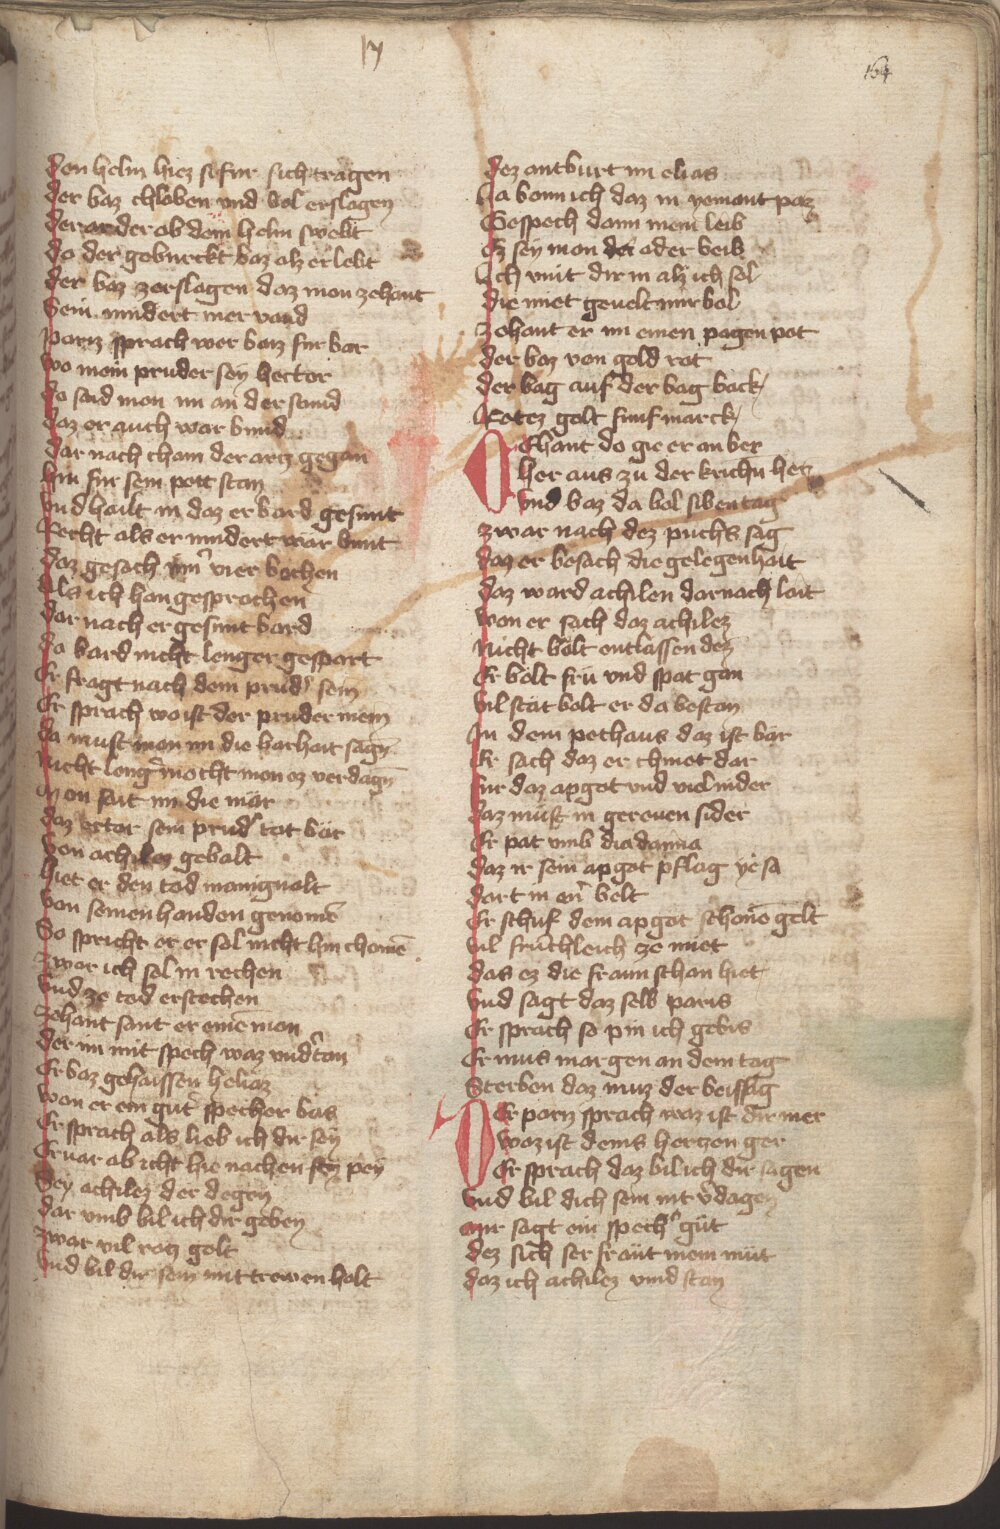 154
den helm hiez si fur sich tragen
der baz chloben vnd bol erslagen
der ander ob dem helm swebt
do der geburckt baz alz er lebt
der baz zerslagen daz mon zehant
Sein mindert mer vand
paris sprach wer baz fur bar
wo mein pruder sey hector
do said mon im an der stund
daz er auch war bund
dar nach cham der artz gegan
hin fur sein pett stan
vnd hailt in daz er bard gesunt
Recht als er mindert war bunt
daz gesach vier bochen
als ich han gesprochen
dar nach er gesunt bard
do bard nicht lenger gespart
Er fragt nach dem prud' sein
Er sprach wo ist der pruder mein
da must mon im die barhait sagn
nicht leng' mocht mon ez verdagn
Mon sait im die mär
daz ector sein prud' tot bär
von achilez gebalt
hiet er den tod manigualt
von seinen handen genomē
So spricht er er sol nicht hin chomē
zwar ich sol in rechen
vnd ze tod erstechen
zehant sant er einē mon
der im mit spech waz
Er baz gehaissen heliaz
wan er ein gut' specher bas
Er sprach als lieb ich dir sey
Ervar ob icht hie nachen pey
Sey achilez der degen
dar vmb bil ich dir geben
zwar vil rotz golt
vnd bil dir sein mit trewen holt
dez antburt im elias
da bonn ich daz in yemant paz
Gespech dann mein leib
Ez sey mon oder beib
Ich vint dir in alz ich sol
die miet geuelt mir bol
zehant er im einen pagen pot
der baz von gold rot
der bag auf der bag back
Rotez golt funf marck
Zehant do gie er an ber
her aus zu der krichn her
vnd baz da bol siben tag
zwar nach dez puchs sag
daz er besach die gelegenhait
daz ward achilen darnach lait
won er sach daz achilez
nicht bolt entlassen dez
Er bolt fru vnd spat gan
vil stät bolt er da bestan
In dem pethaus daz ist bär
Er sach daz er chniet dar
fur daz apgot vnd viel nider
daz must in gereuen sider
Er pat vmb diadamia
daz ir sein apgot pflag
dort in belt
Er schuf dem apgot schone gelt
vil fruchtleich ze miet
das ez die fraun schan hiet
vnd sagt daz selb paris
Er sprach so pin ich gebis
Er mus margen an dem tag
Sterben daz muz der beissag
Der paris sprach waz ist dir mer
waz ist deins hertzen ger
Er sprach daz bil ich dir sagen
vnd bil dich sein nit v'dagen
mir sagt ein spech' gut
dez sich ser fräut mein müt
daz ich achilez vind stan